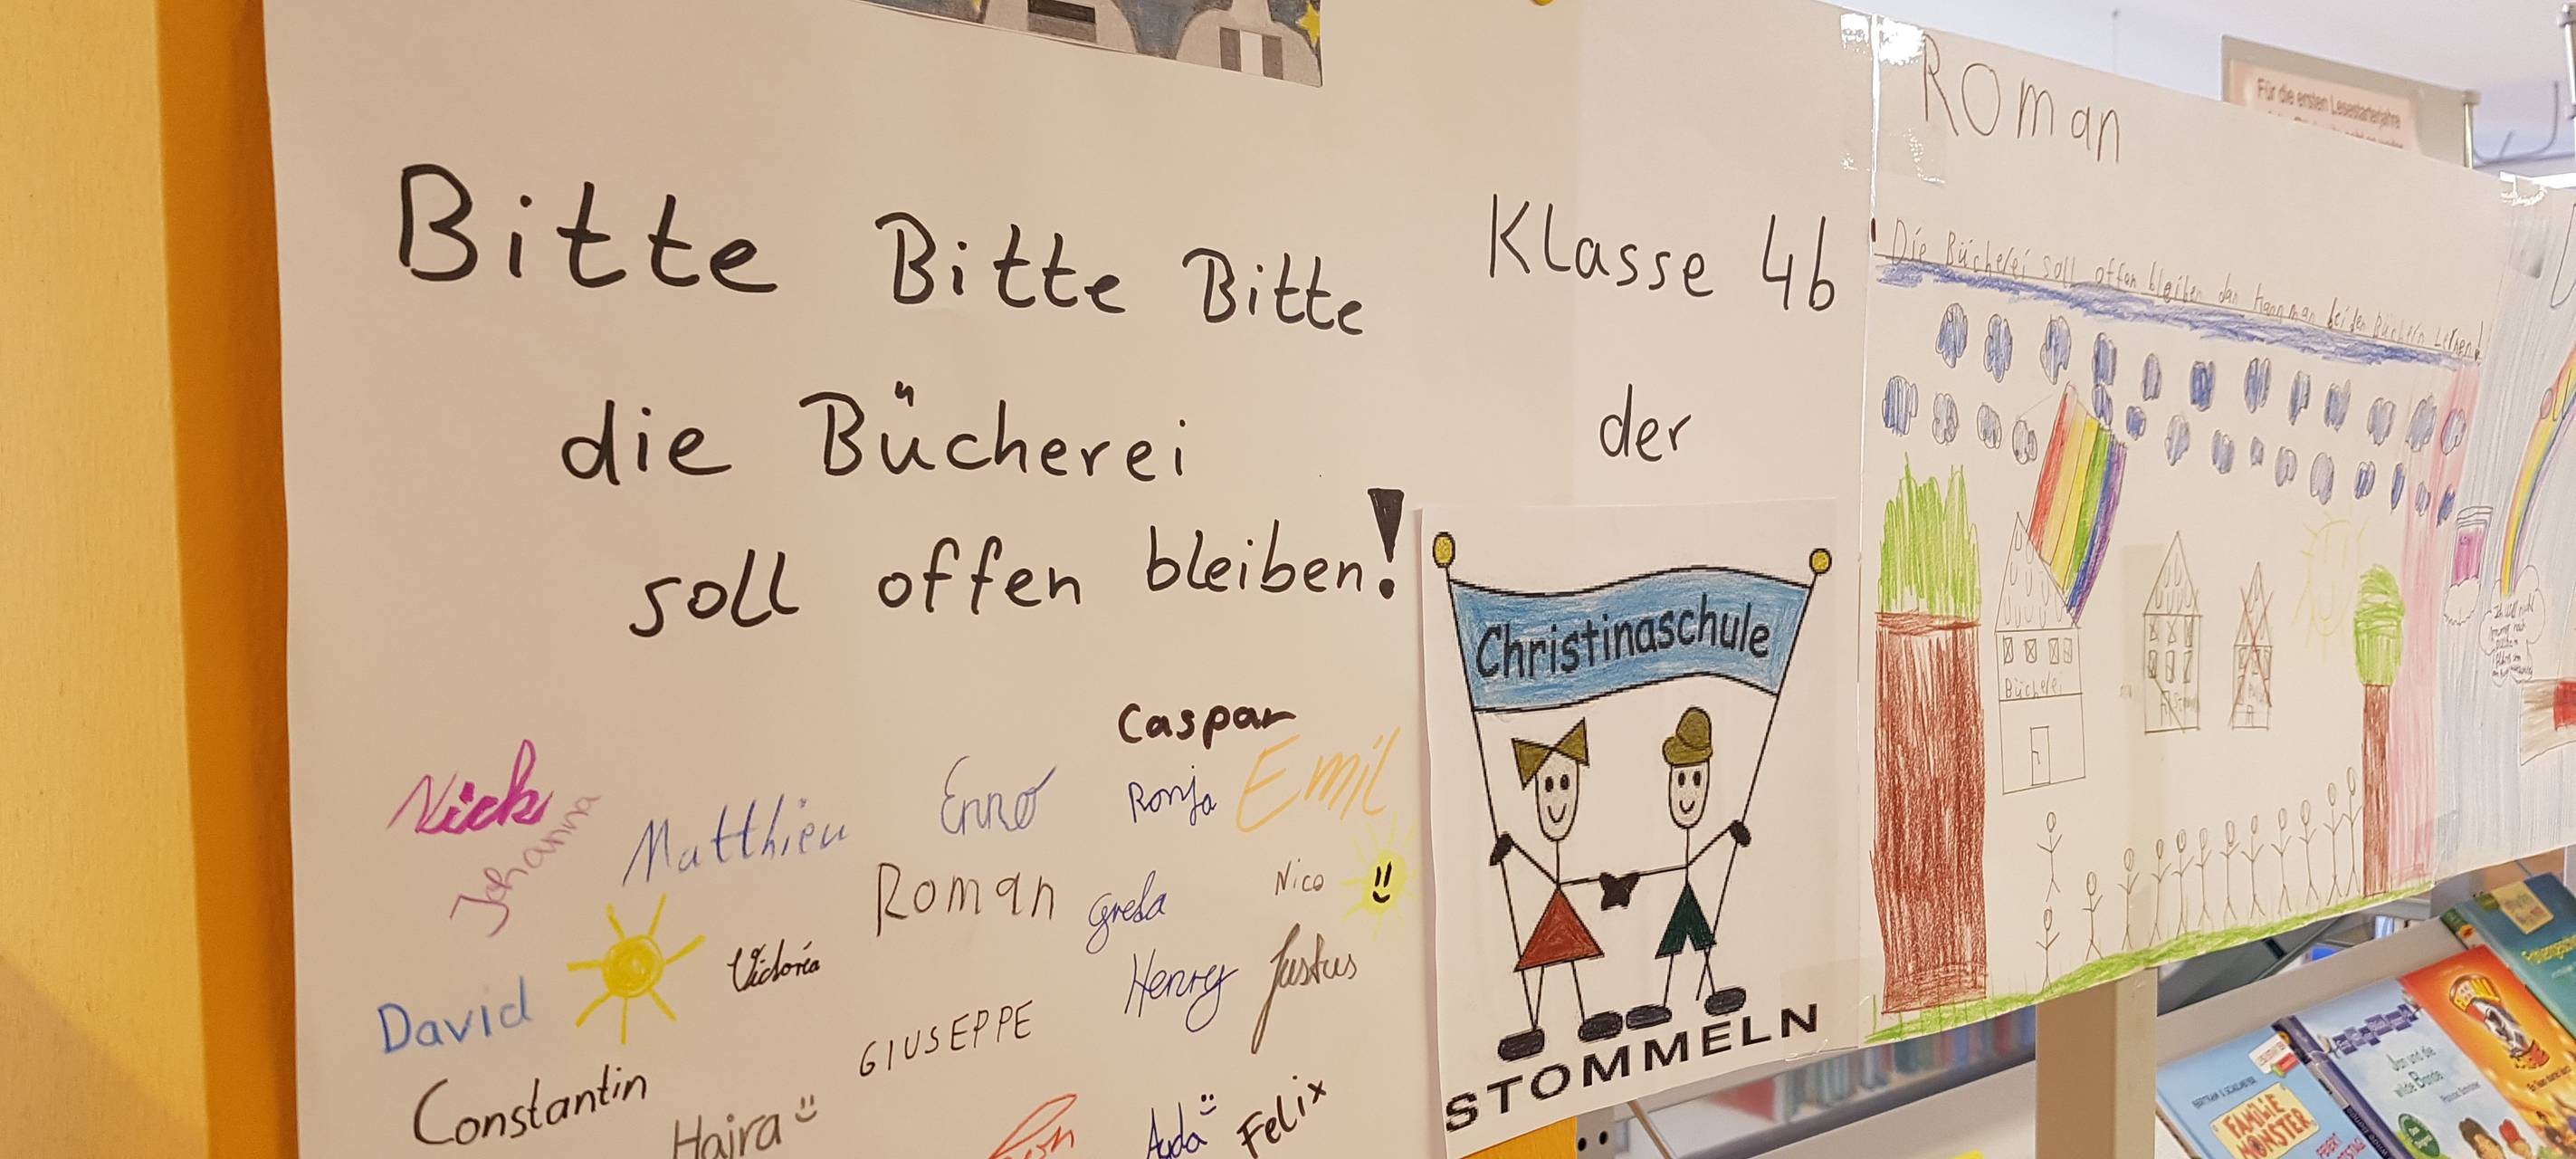 Bitte Bitte Bitte
die Bücherei
soll offen bleiben!
Caspar
Nick
Johanna
Matthieu
Enno
Ronja
Emil
Roman
Greta
Nico
Victoria
David
Henry
Justus
GIUSEPPE
Constantin
Hajra
Ayda
Felix
Klasse 4b
der
Christinaschule
STOMMELN
Roman
Die Bücherei soll offen bleiben dan kann man bei den Büchern Lernen!
Bücherei
Für die ersten Lesestarterjahre
FAMILIE
MONSTER
FEIERT
Jan und die
wilde Bande